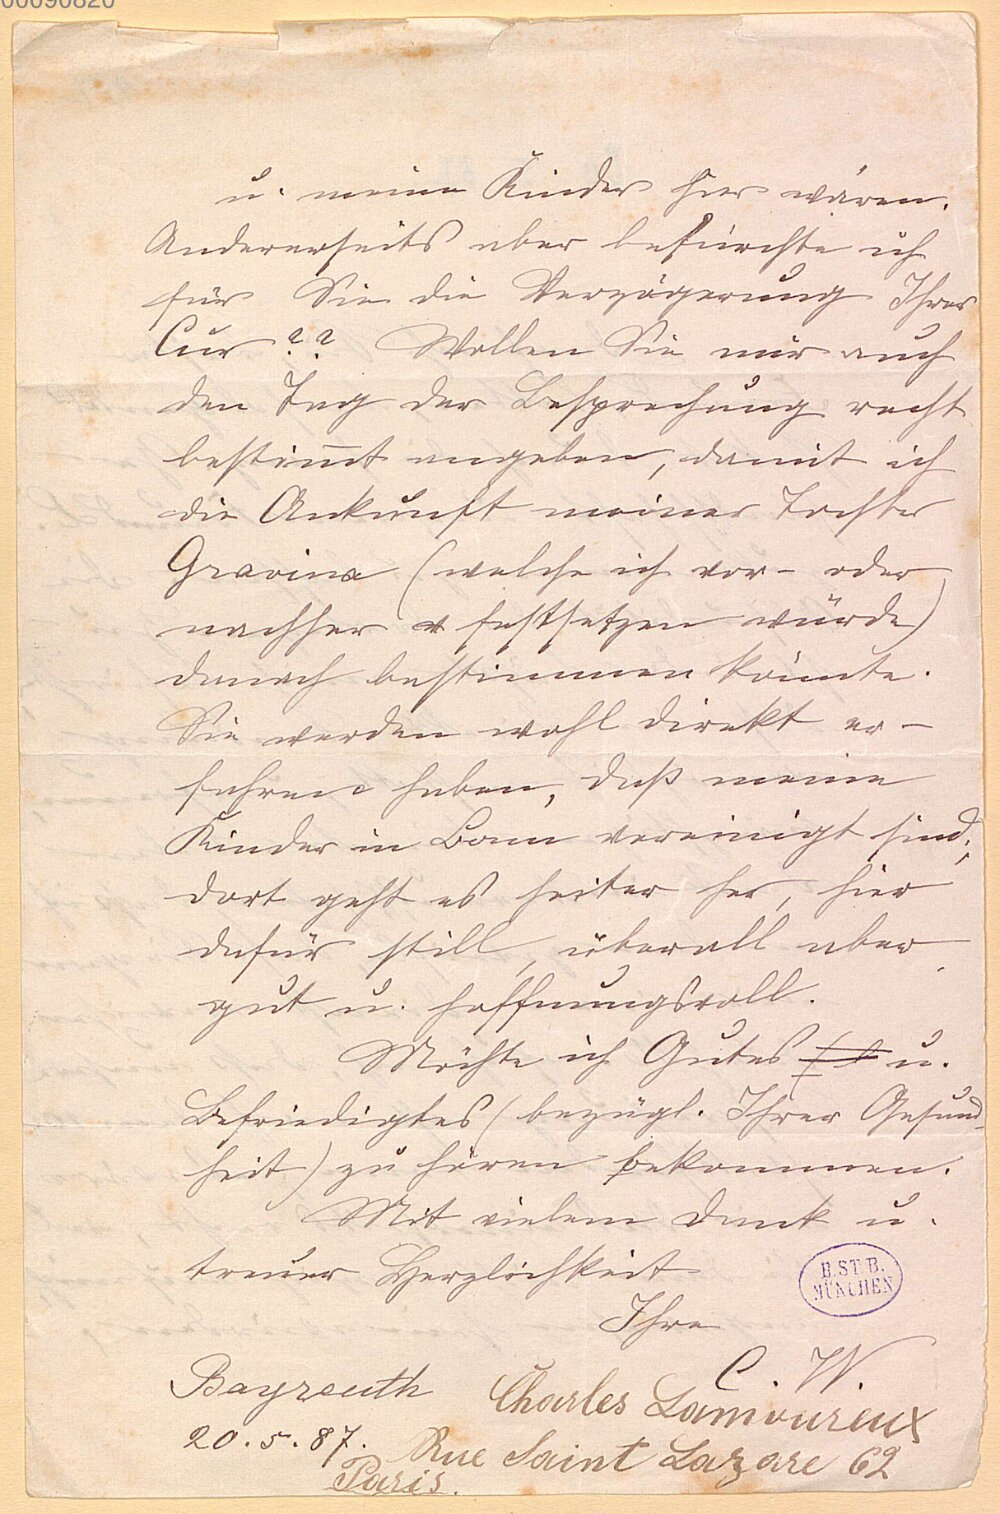 00090820
u. meine Kinder hier wären.
Andererseits aber befürchte ich
für Sie die Verzögerung Ihrer
Cur?? Wollen Sie mir auch
den Tag der Besprechung recht
bestimt angeben, damit ich
die Ankunft meiner Tochter
Gravina (welche ich vor- oder
nachher festsetzen würde)
danach bestimmen könnte.
Sie werden wohl direkt er-
fahren haben, daß meine
Kinder in Bonn vereinigt sind;
dort geht es heiter her, hier
dafür still, überall aber
gut u. hoffnungsvoll.
Möchte ich Gutes u.
Befriedigtes (bezügl. Ihrer Gesund-
heit) zu hören bekommen.
Mit vielem Dank u.
treuer Herzlichkeit
Ihre
C. W.
B.ST.B.
MÜNCHEN
Bayreuth
20.5.87.
Charles Lamoureux
Rue Saint Lazare 62
Paris.